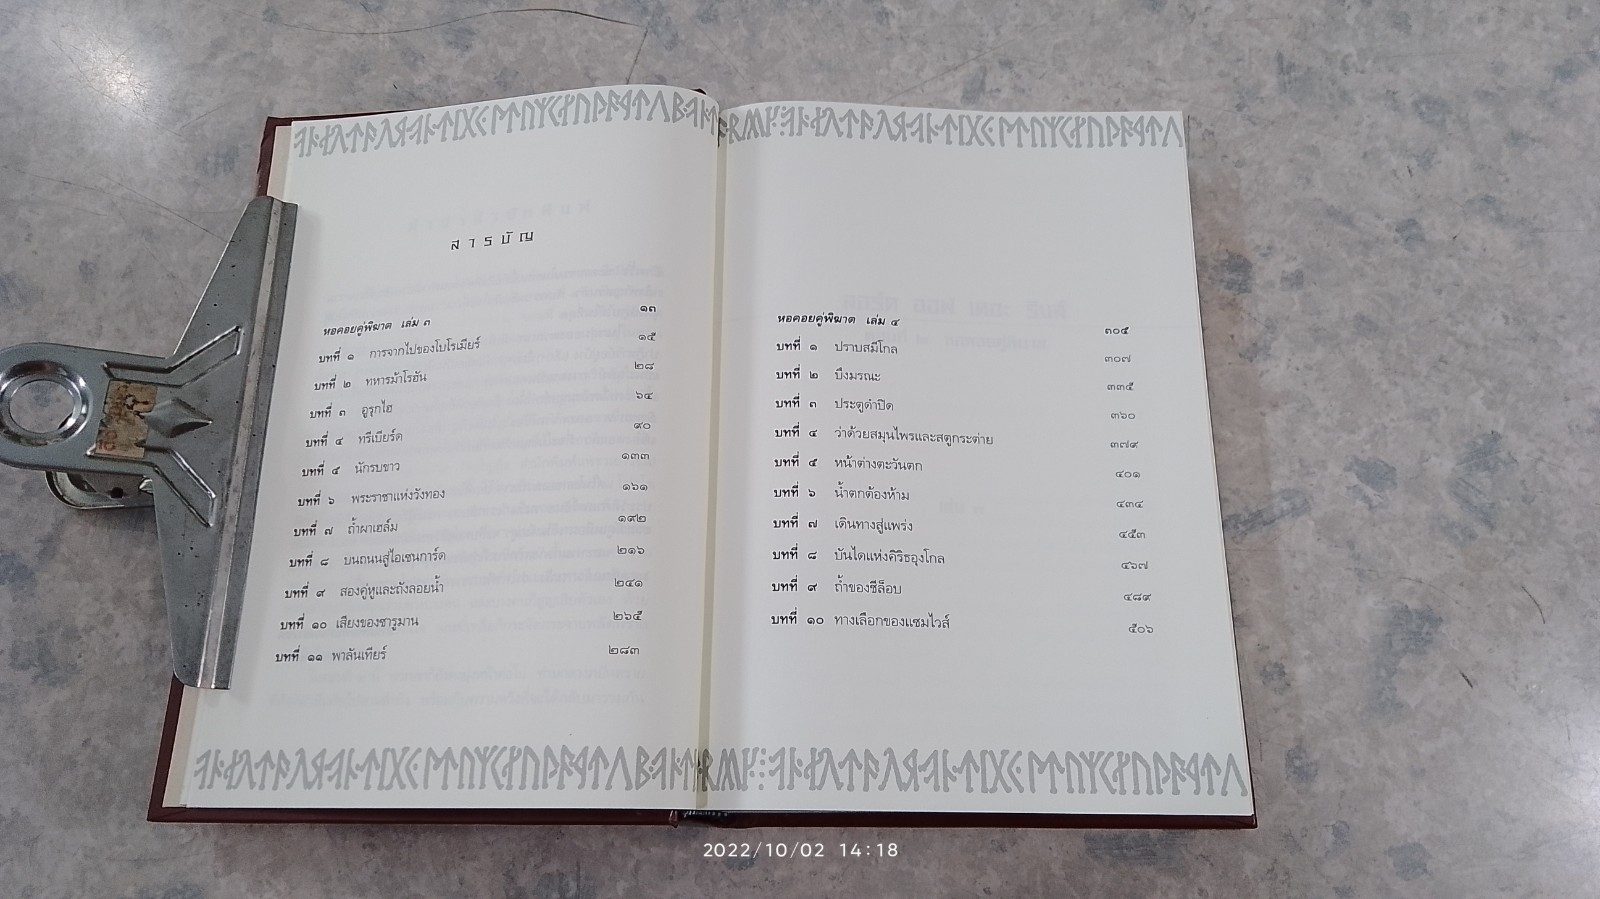 สารบัญ
หอคอยคู่พิฆาต เล่ม ๓ ๑๓
บทที่ ๑ การจากไปของโบโรเมียร์ ๑๕
บทที่ ๒ ทหารม้าโรฮัน ๒๘
บทที่ ๓ อูรุกไฮ ๖๔
บทที่ ๔ ทรีเบียร์ด ๙๐
บทที่ ๕ นักรบขาว ๑๓๓
บทที่ ๖ พระราชาแห่งวังทอง ๑๖๑
บทที่ ๗ ถ้ำผาเฮล์ม ๑๙๒
บทที่ ๘ บนถนนสู่ไอเซนการ์ด ๒๑๖
บทที่ ๙ สองคู่หูและถังลอยน้ำ ๒๔๑
บทที่ ๑๐ เสียงของซารูมาน ๒๖๕
บทที่ ๑๑ พาลันเทียร์ ๒๘๓
หอคอยคู่พิฆาต เล่ม ๔ ๓๐๕
บทที่ ๑ ปราบสมีโกล ๓๐๗
บทที่ ๒ บึงมรณะ ๓๓๕
บทที่ ๓ ประตูดำปิด ๓๖๐
บทที่ ๔ ว่าด้วยสมุนไพรและสตูกระต่าย ๓๗๙
บทที่ ๕ หน้าต่างตะวันตก ๔๐๑
บทที่ ๖ น้ำตกต้องห้าม ๔๓๔
บทที่ ๗ เดินทางสู่แพร่ง ๔๕๓
บทที่ ๘ บันไดแห่งคิริธอุงโกล ๔๖๗
บทที่ ๙ ถ้ำของชีล็อบ ๔๘๙
บทที่ ๑๐ ทางเลือกของแซมไวส์ ๕๐๖
2022/10/02 14:18